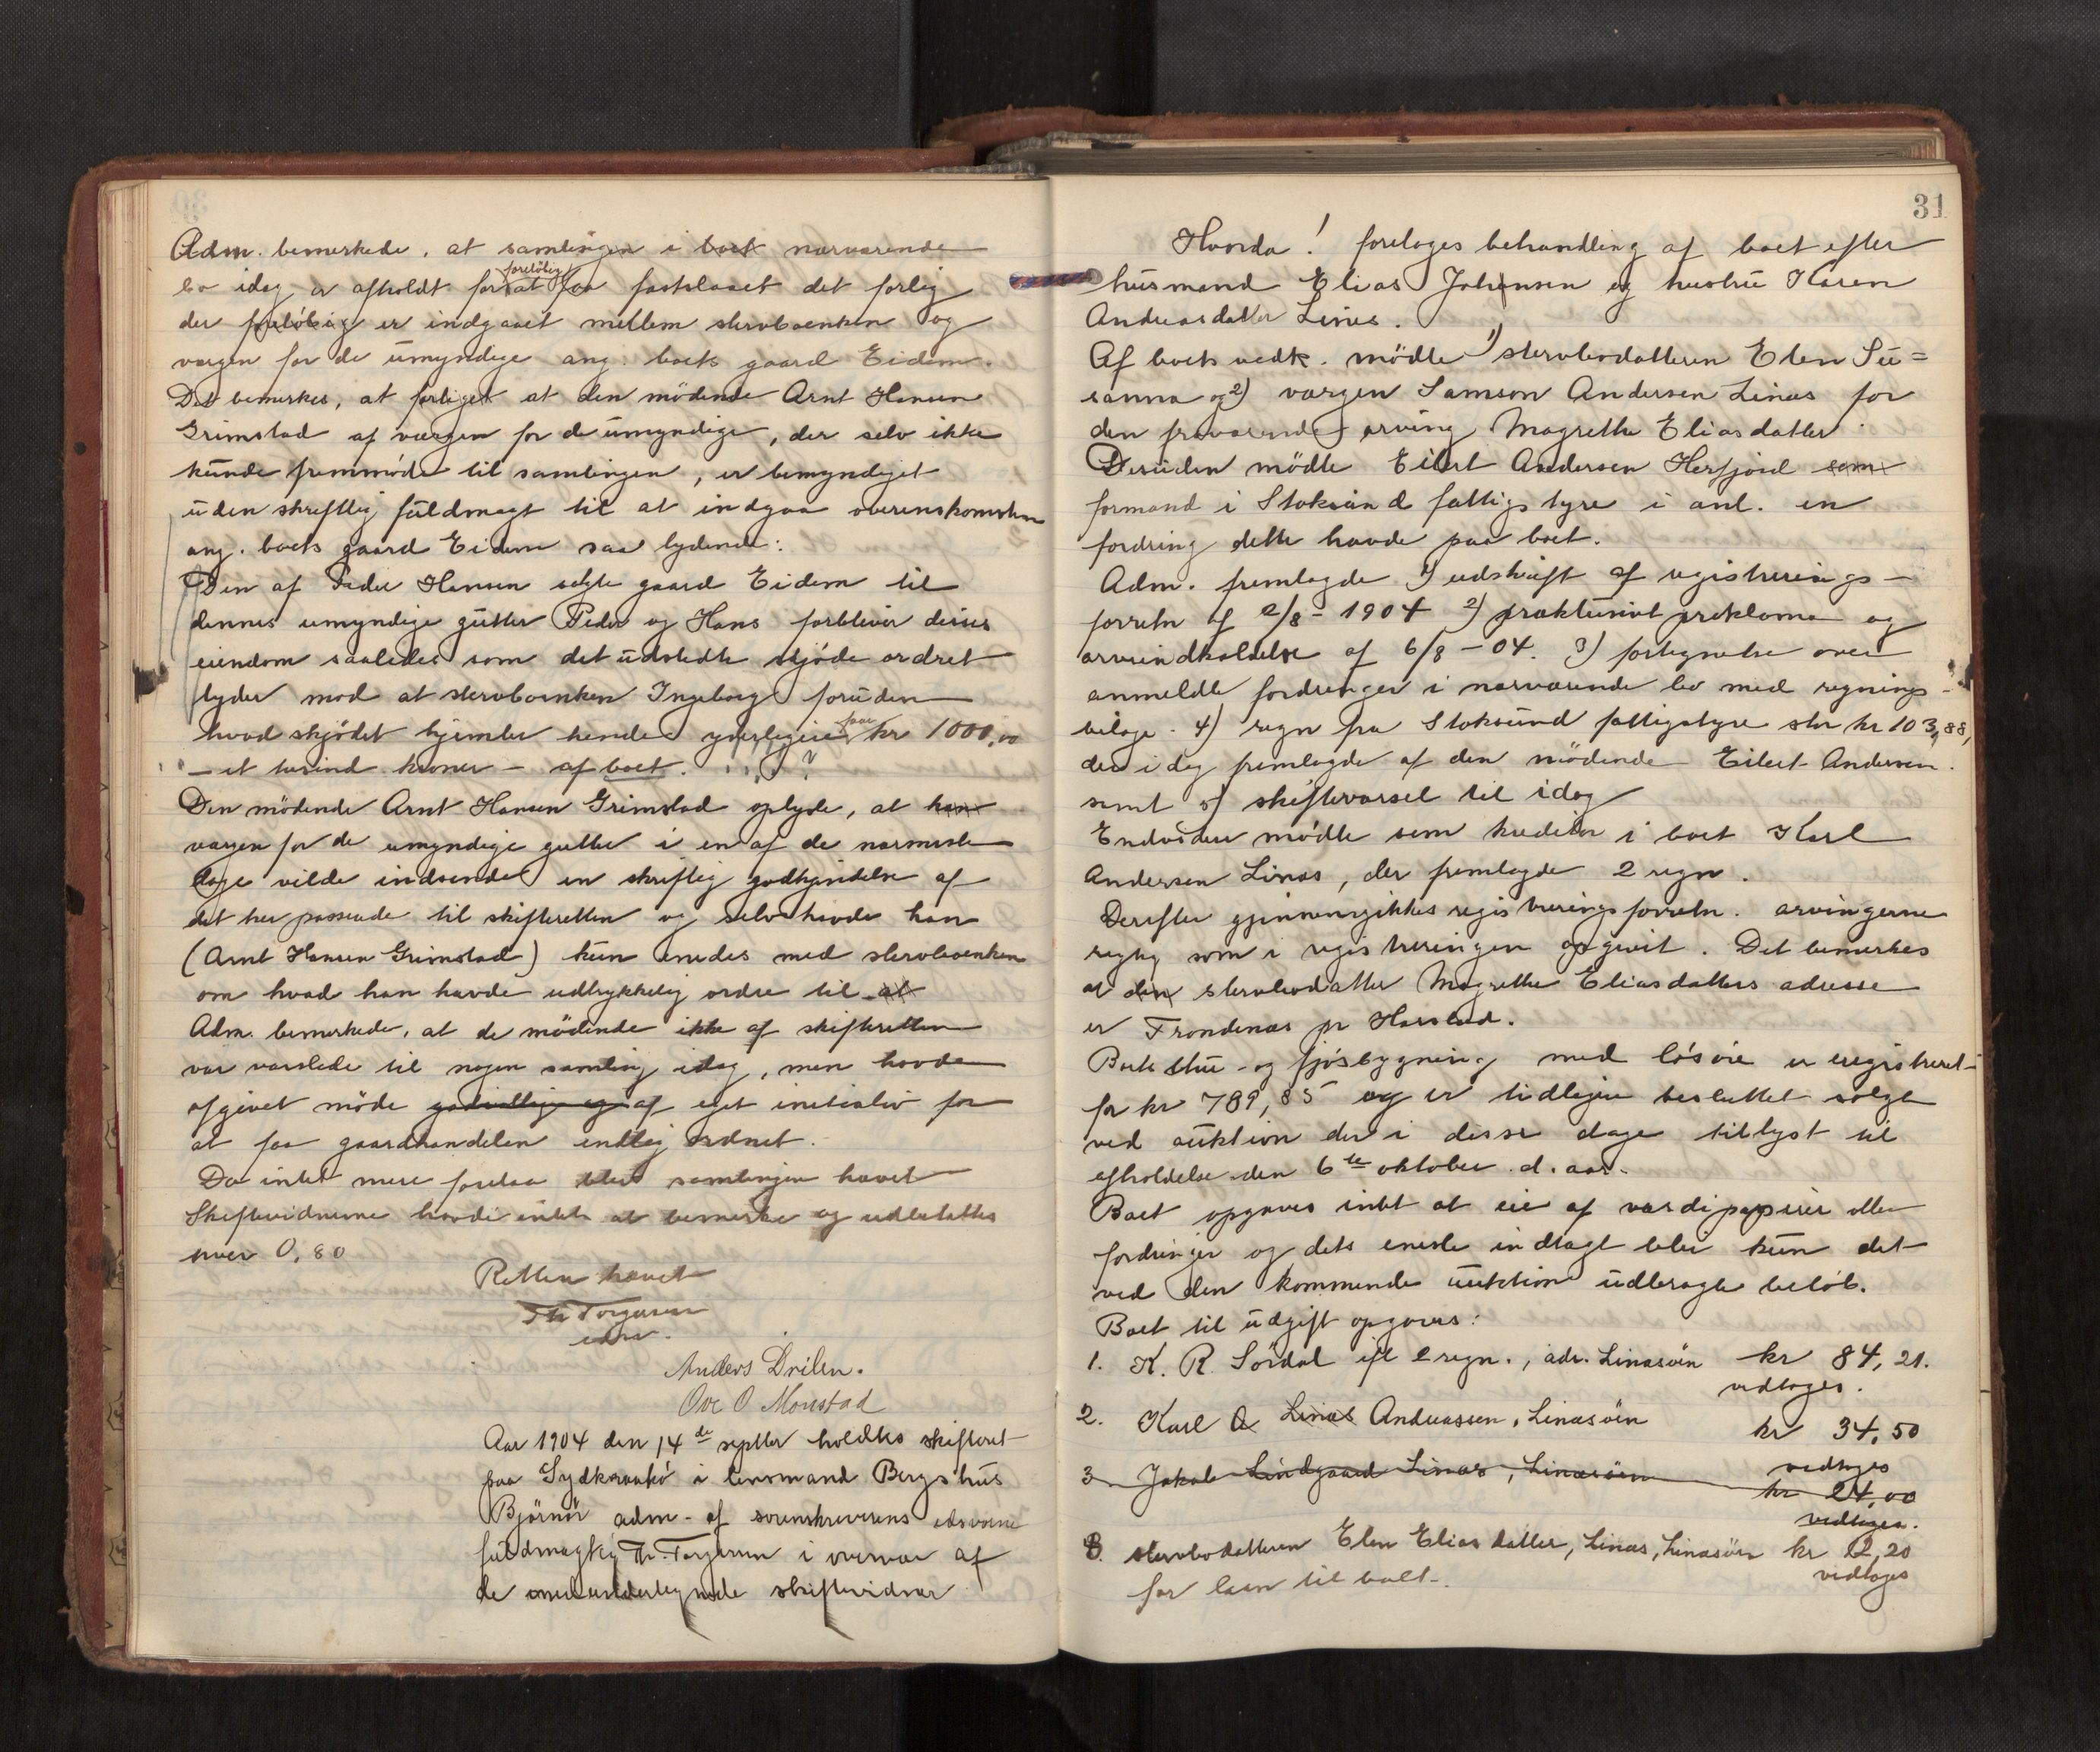 Adm. bemerkede, at samlingen i boet nærværende
bo idag er afholdt for foreløbig at faa fastslaaet det forlig
der foreløbig er indgaaet mellem stervboenken og
vergen for de umyndige ang. boets gaard Eidem.
Det bemerkes, at forliget at den mødende Arnt Hansen
Grimstad af værgen for de umyndige, der selv ikke
kunde fremmøde til samlingen, er bemyndiget
uden skriftlig fuldmagt til at indgaa overenskomsten
ang. boets gaard Eidem saa lydende:
Den af Peder Hansen solgte gaard Eidem til
dennes umyndige gutter Peder og Hans forbliver disses
eiendom saaledes som det udstedte skjøde ordret
lyder mod at stervboenken Ingeborg foruden
hvad skjødet hjemler hende yderligere faar kr 1000,00
– et tusind kroner – af boet.
Den mødende Arnt Hansen Grimstad oplyste, at han
værgen for de umyndige gutter i en af de nærmeste
dage vilde indsende en skriftlig godkjendelse af
det her passerede til skifteretten og selv havde han
(Arnt Hansen Grimstad) kun enedes med stervboenken
om hvad han havde udtrykkelig ordre til at
Adm. bemerkede, at de mødende ikke af skifteretten
var varslede til nogen samling idag, men havde
afgivet møde godvillig og af eget initiativ for
at faa gaardhandelen endelig ordnet.
Da intet mere forelaa blev samlingen hævet
Skiftevidnerne havde intet at bemerke og udbetaltes
hver 0,80
Retten hævet
Th Torgersen
edsv.
Anders Drilen.
Ove O Monstad
Aar 1904 den 14de septbr holdtes skifteret
paa Sydkraakø i lensmand Bergs hus
Bjørnør adm. af sorenskriverens edsvorne
fuldmægtig Th. Torgersen i overvær af
de medundertegnede skiftevidner
31
Hvorda! foretoges behandling af boet efter
husmand Elias Johansen og hustru Karen
Andreasdatter Linæs.
Af boets vedk. mødte 1) stervbodatteren Elen Su=
sanna og 2) værgen Samson Andersen Linæs for
den fraværende arving Magrethe Eliasdatter.
Desuden mødte Eilert Andersen Herfjord som
formand i Stoksund fattigstyre i anl. en
fordring dette havde paa boet.
Adm. fremlagde 1) udskrift af registrerings-
forretn af 2/8 - 1904 2) præklusivt proklama og
arveindkaldelse af 6/8 - 04. 3) fortegnelse over
anmeldte fordringer i nærværende bo med regnings-
bilage. 4) regn fra Stoksund fattigstyre stor kr 103,88,
der idag fremlagde af den mødende Eilert Andersen.
samt 5) skiftevarsel til idag
Endvidere mødte som kreditor i boet Karl
Andersen Linæs, der fremlagde 2 regn.
Derefter gjennemgikkes registreringsforretn. arvingerne
rigtig som i registreringen opgivit. Det bemerkes
at den stervbodatter Magrethe Eliasdatters adresse
er Trondenæs pr Harstad.
Boets stue- og fjøsbygning med løsøre er registreret
for kr 789,85 og er tidligere besluttet solgt
ved auktion der i disse dage tillyst til
afholdelse den 6te oktober d. aar.
Boet opgaves intet at eie af værdipapirer eller
fordringer og dets eneste indtægt blir kun det
ved den kommende auktion udbragte beløb.
Boet til udgift opgaves:
1. K. R. Sørdal ifl 2 regn., adr. Linæsøen kr 84,21.
vedtoges.
2. Karl A Linæs Andreassen, Linæsøen kr 34,50
vedtoges
3 Jakob Lindgaard Linæs, Linæsøen kr 24,00
vedtoges.
3. stervbodatteren Elen Eliasdatter, Linæs, Linæsøen kr 12,20
for laan til boet. vedtoges